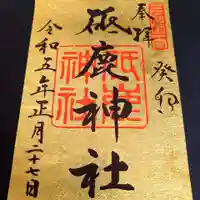 奉拝
癸卯
砥鹿神社
令和五年正月二十七日
砥鹿
神社